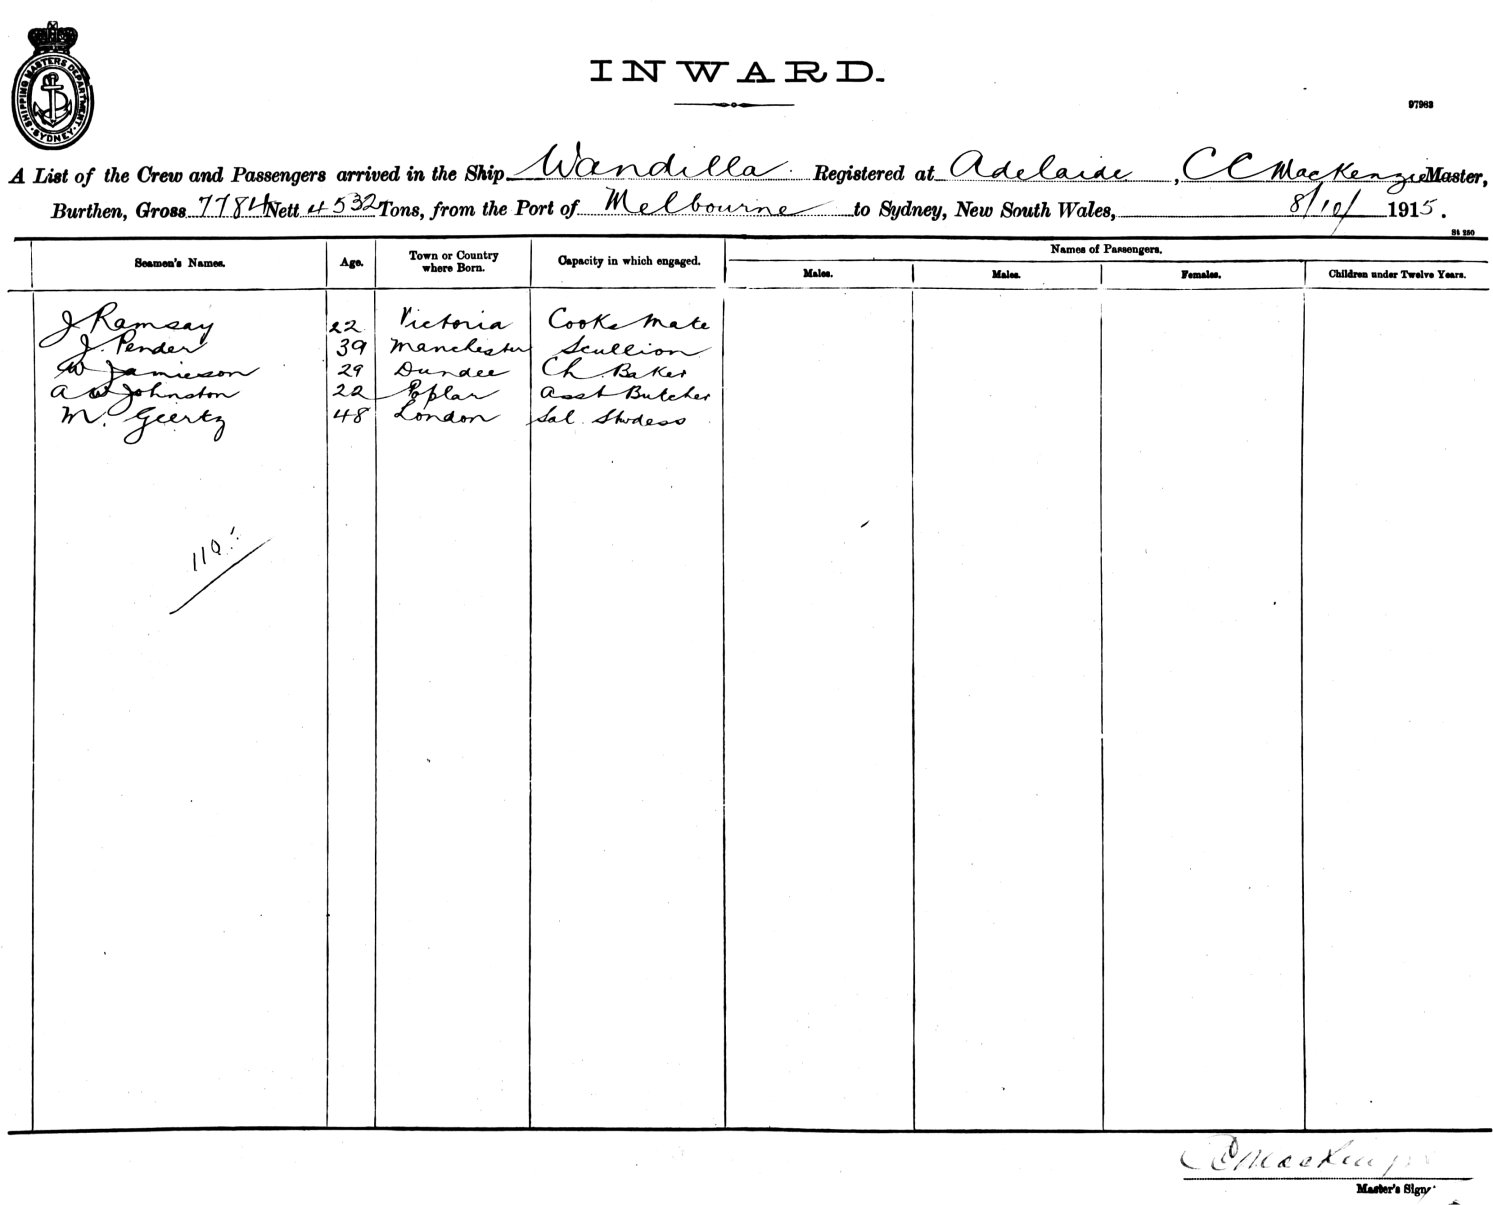 SHIPPING MASTERS DEPARTMENT. SYDNEY.
INWARD.
97963
A List of the Crew and Passengers arrived in the Ship Wandilla Registered at Adelaide, CC MacKenzie Master,
Burthen, Gross 7784 Nett 4532 Tons, from the Port of Melbourne to Sydney, New South Wales, 8/10/ 1915.
St 250
Seamen's Names. Age. Town or Country where Born. Capacity in which engaged. Names of Passengers.
Males. Males. Females. Children under Twelve Years.
J Ramsay 22 Victoria Cooks Mate
J. Pender 39 Manchester Scullion
W Jamieson 29 Dundee Ch. Baker
A W Johnston 22 Poplar Asst Butcher
M. Geertz 48 London Sal. Stwdess
110
CC MacKenzie
Master's Sign